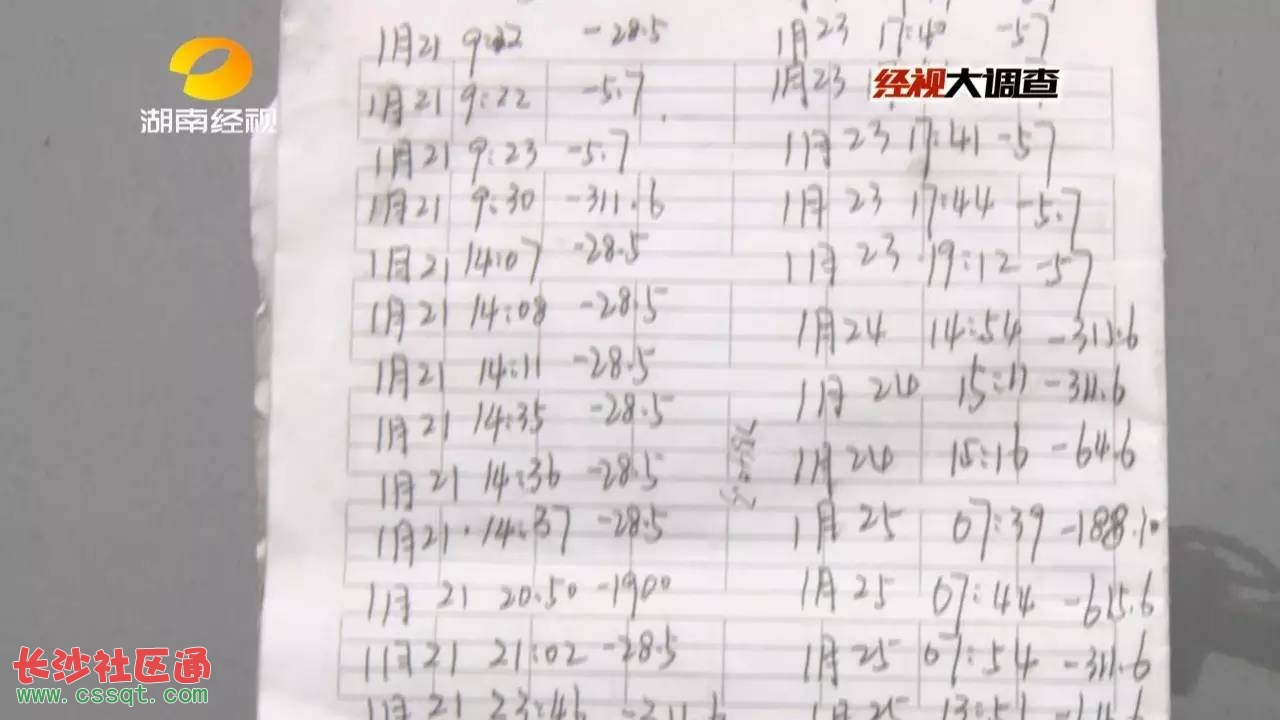 湖南经视
经视大调查
1月21 9:22 -28.5
1月21 9:22 -5.7
1月21 9:23 -5.7
1月21 9:30 -311.6
1月21 14:07 -28.5
1月21 14:08 -28.5
1月21 14:11 -28.5
1月21 14:35 -28.5
1月21 14:36 -28.5
1月21 14:37 -28.5
1月21 20:50 -1900
1月21 21:02 -28.5
1月21 23:46
1月23 17:40 -57
1月23
1月23 17:41 -57
1月23 17:44 -5.7
1月23 19:12 -57
1月24 14:54 -311.6
1月24 15:11 -311.6
1月24 15:16 -64.6
1月25 07:39 -188.10
1月25 07:44 -615.6
1月25 07:54 -311.6
1月25
长沙社区通
www.cssqt.com